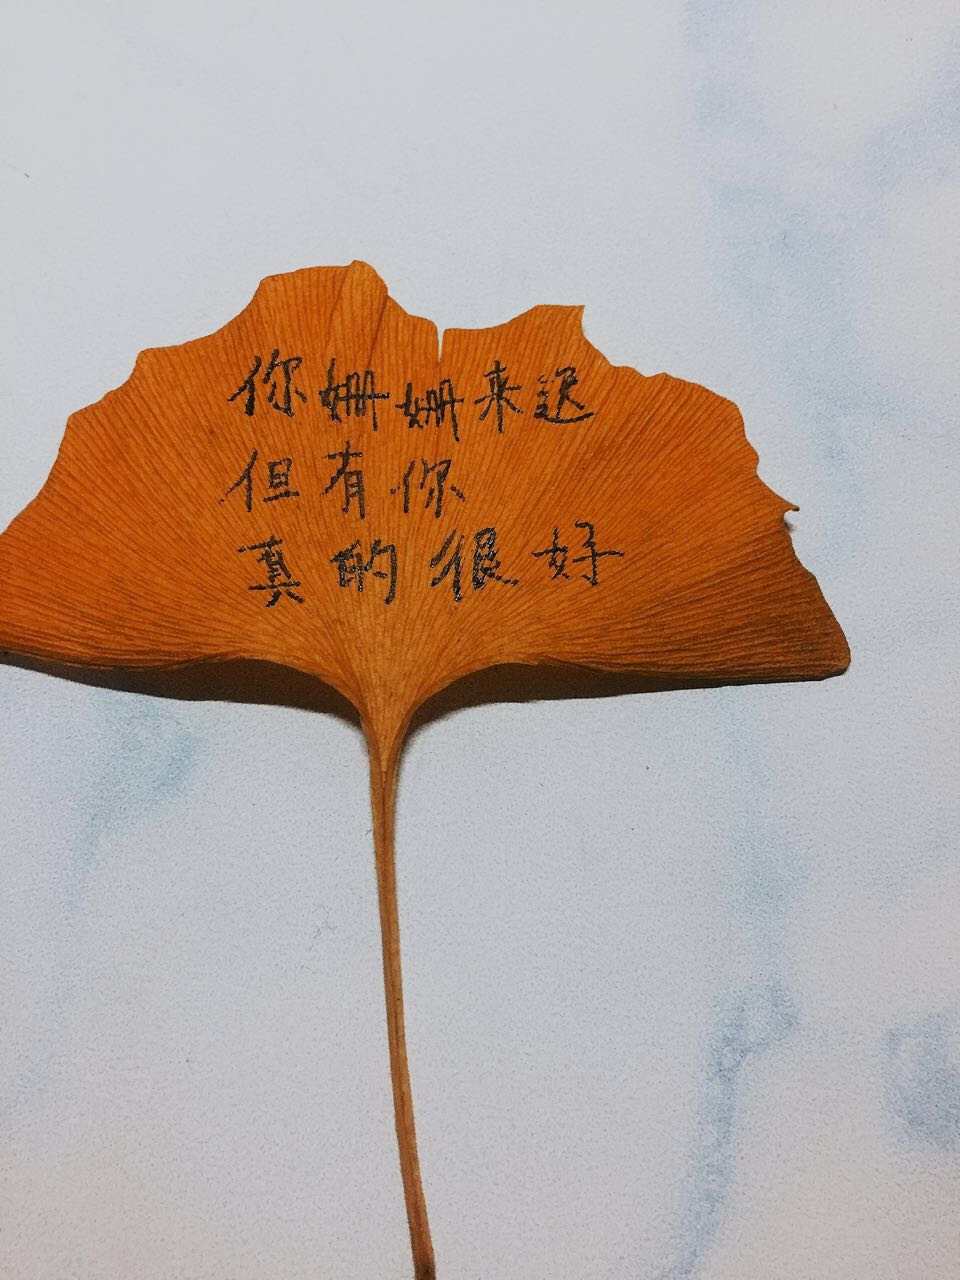 你姗姗来迟
但有你
真的很好